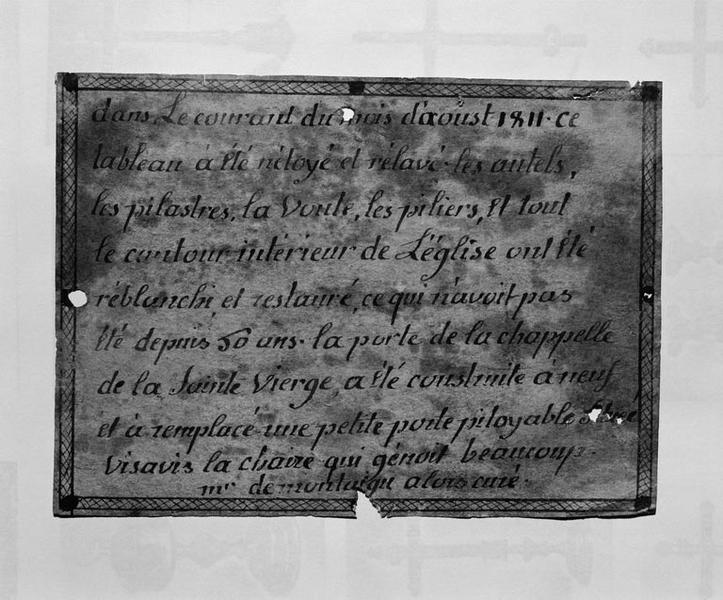 dans Le courant du mois d'aoust 1811. ce
tableau à été nétoyé et rélavé. les autels,
les pilastres, la Voute, les piliers, Et tout
le contour intérieur de L'église ont été
réblanchi, et restauré, ce qui n'avoit pas
été depuis 50 ans. la porte de la chappelle
de la Sainte Vierge, a été construite a neuf
et à remplacé une petite porte pitoyable
Visavis la chaire qui génoit beaucoup.
mr. demontaigu alors curé.